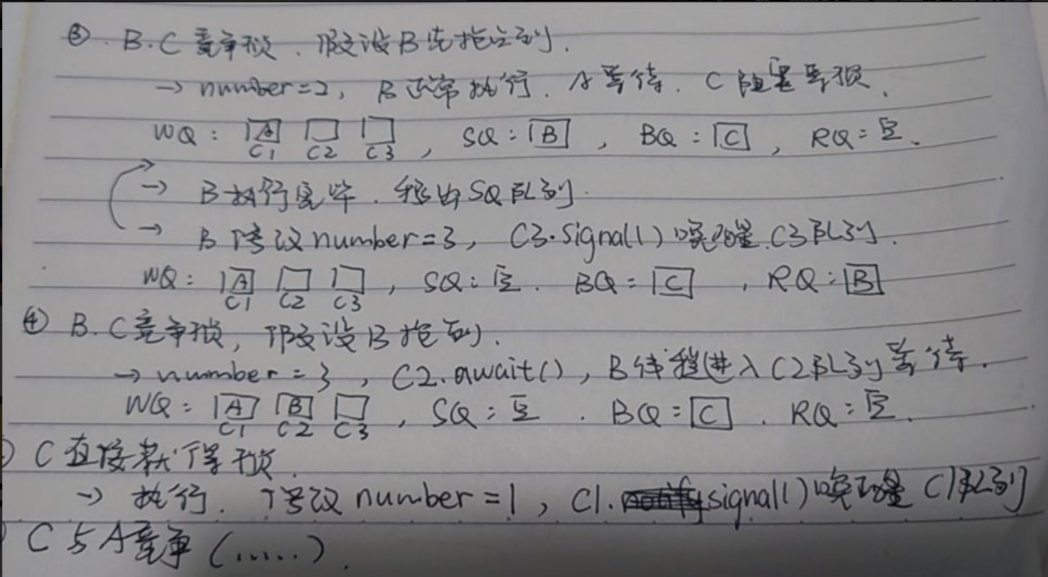 ③ B.C竞争锁.假设B先抢到.
→ number=2, B正常执行.A等待.C阻塞等锁.
WQ: [A] [ ] [ ], SQ:[B], BQ:[C], RQ:空.
C1 C2 C3
→ B执行完毕.移出SQ队列.
→ B修改number=3, C3.signal()唤醒C3队列.
WQ: [A] [ ] [ ], SQ:空. BQ=[C], RQ:[B]
C1 C2 C3
④ B.C竞争锁,假设B抢到.
→ number=3, C2.await(), B线程进入C2队列等待.
WQ: [A] [B] [ ], SQ:空. BQ=[C]. RQ:空.
C1 C2 C3
C直接获得锁
→ 执行.修改number=1, C1.signal()唤醒C1队列
C与A竞争(......).